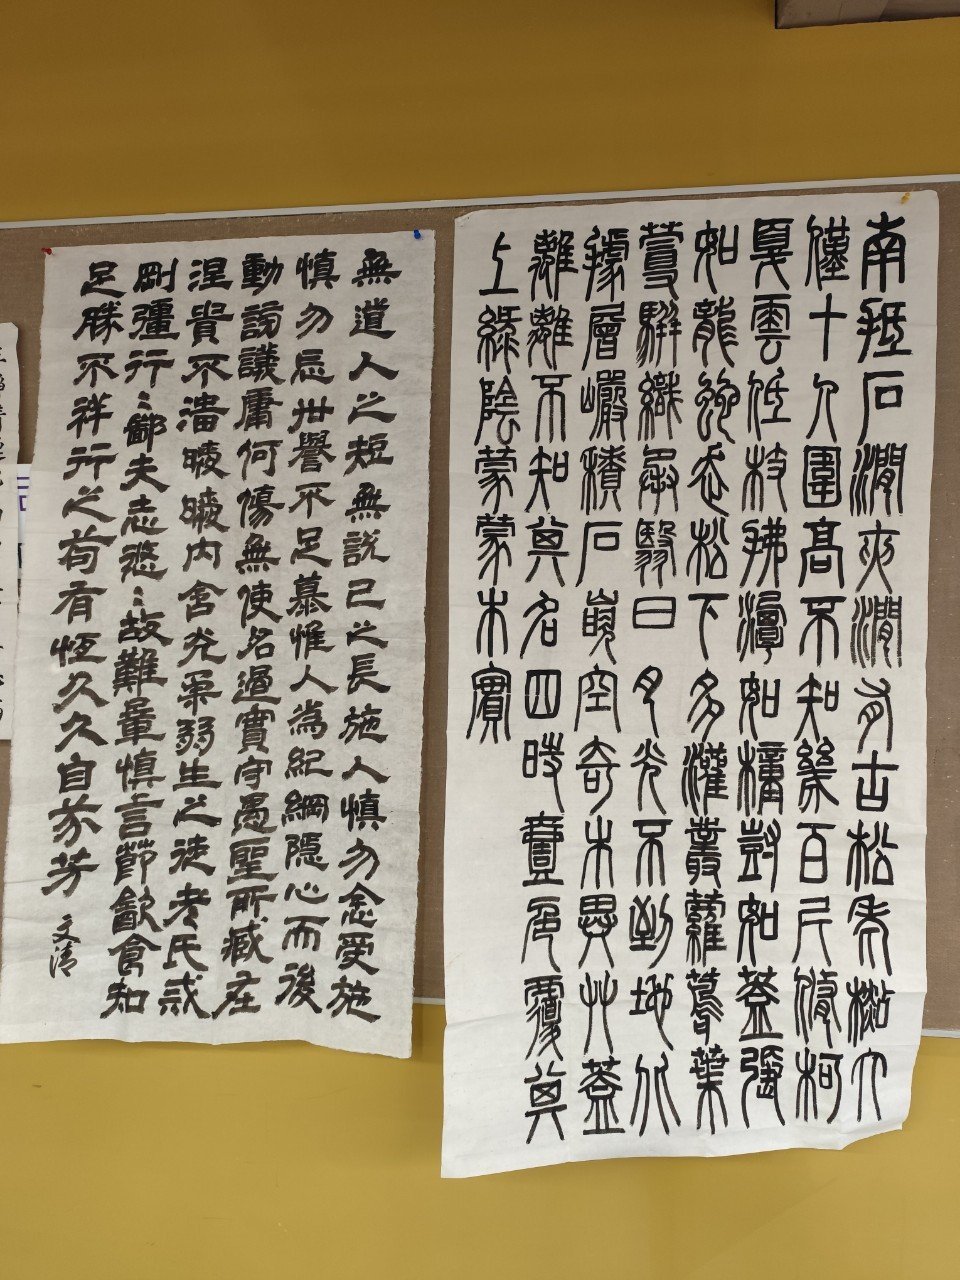 南抵石澗夾澗有古松老檆大
僅十人圍高不知幾百尺脩柯
戛雲低枝拂潭如橦尌如蓋張
如龍蛇走松下多灌叢蘿蔦葉
蔓駢織承翳日月光不到地北
據層巖積石嵌空奇木異草蓋
離離不知其名四時壹色覆其
上綠陰蒙蒙朱實
無道人之短無說己之長施人慎勿念受施
慎勿忘世譽不足慕惟人為紀綱隱心而後
動謗議庸何傷無使名過實守愚聖所臧在
涅貴不湽曖曖內含光柔弱生之徒老氏戒
剛彊行〻鄙夫志悠〻故難量慎言節飲食知
足勝不祥行之苟有恆久久自芬芳
文清